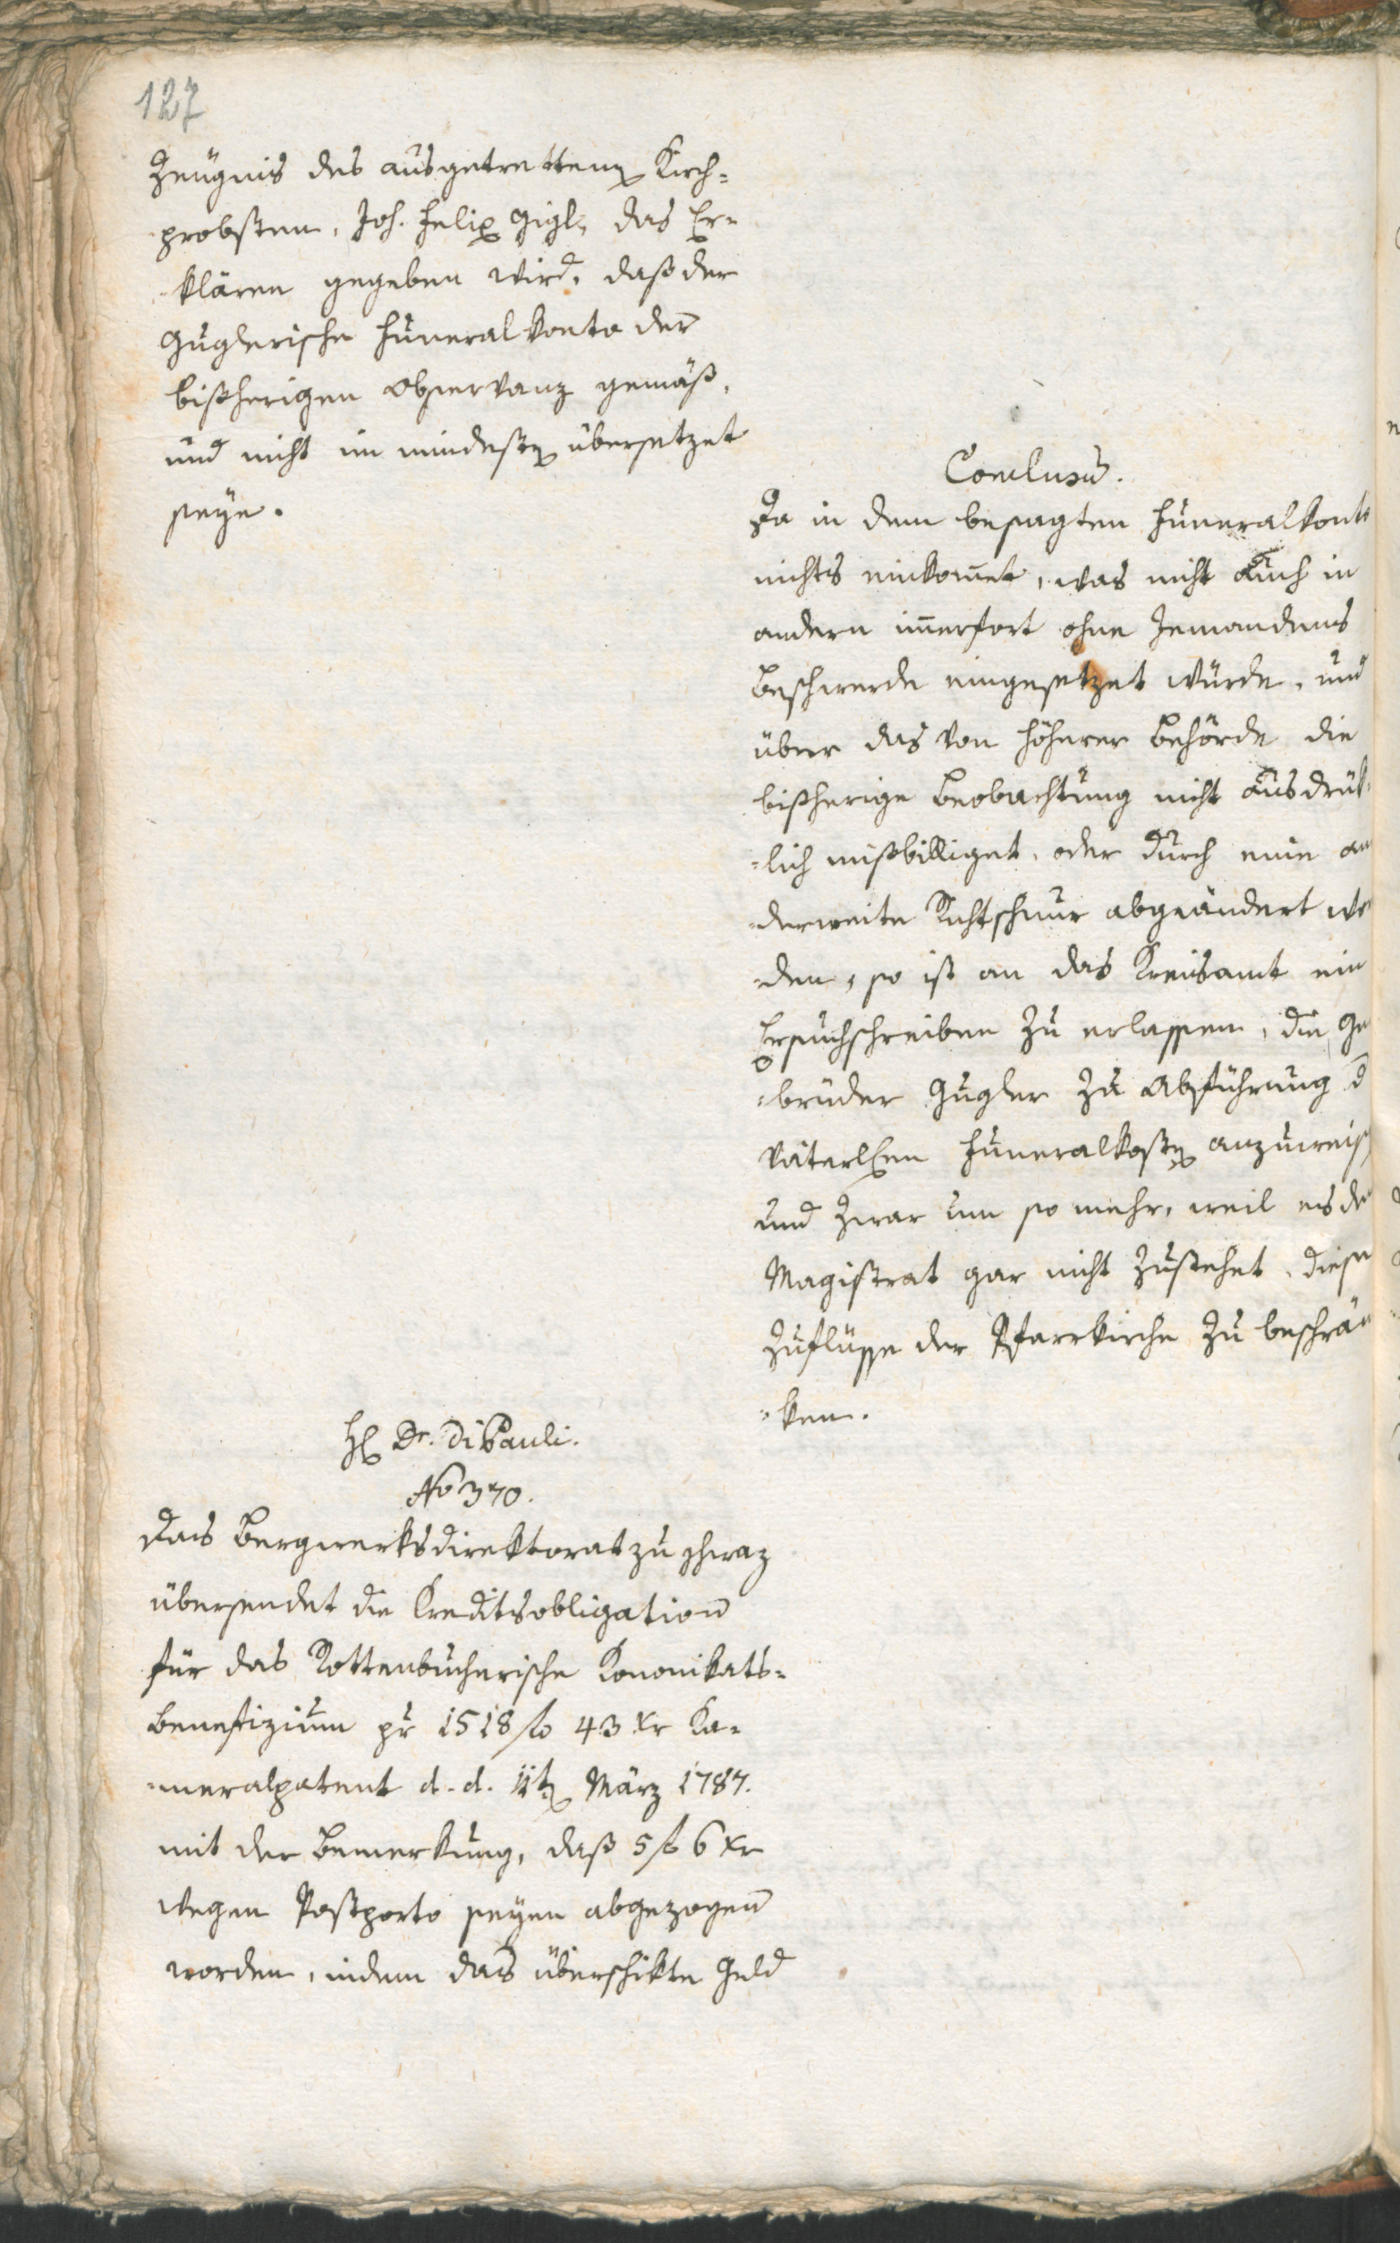 127
Zeugnis des ausgetrettenen Kirch=
probsten, Joh. Felix Gigl, das Er=
klären gegeben wird, daß der
Guglerische Funeralkonto der
bißherigen Observanz gemäß,
und nicht im mindesten übersetzet
seye.
Conclusum.
Da in dem besagten Funeralkonto
nichts einkommet, was nicht auch in
andern immerfort ohne Jemandens
Beschwerde eingesetzet wurde, und
über das von höherer Behörde die
bißherige Beobachtung nicht ausdrük=
=lich mißbilliget, oder durch eine an
=derweite Richtschnur abgeändert wor
=den, so ist an das Kreisamt ein
Ersuchschreiben zu erlassen, die Ge
=brüder Gugler zu Abführung d
väterlichen Funeralkosten anzuweisen
und zwar um so mehr, weil es dem
Magistrat gar nicht zustehet, diese
Zuflüsse der Pfarrkirche zu beschrän
=ken.
H. Dr. Di Pauli.
No 370.
Das Bergwerksdirektorat zu Schwaz
übersendet die Kreditsobligation
für das Rottenbucherische Kononikats=
Benefizium pr 1518 fl 43 xr Ka=
=meralpatent d. d. 11ten März 1787.
mit der Bemerkung, daß 5 fl 6 xr
wegen Postporto seyen abgezogen
worden, indem das überschikte Geld